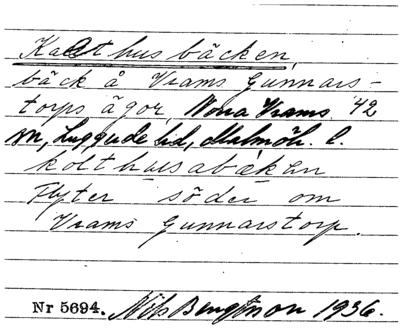 Kalthusbäcken,
bäck å Vrams Gunnars-
torps ägor, Norra Vrams '42
sn, Luggude hd, Malmöh. l.
kolthusabækan
Flyter söder om
Vrams Gunnarstorp.
Nr 5694. Nils Bengtson 1936.